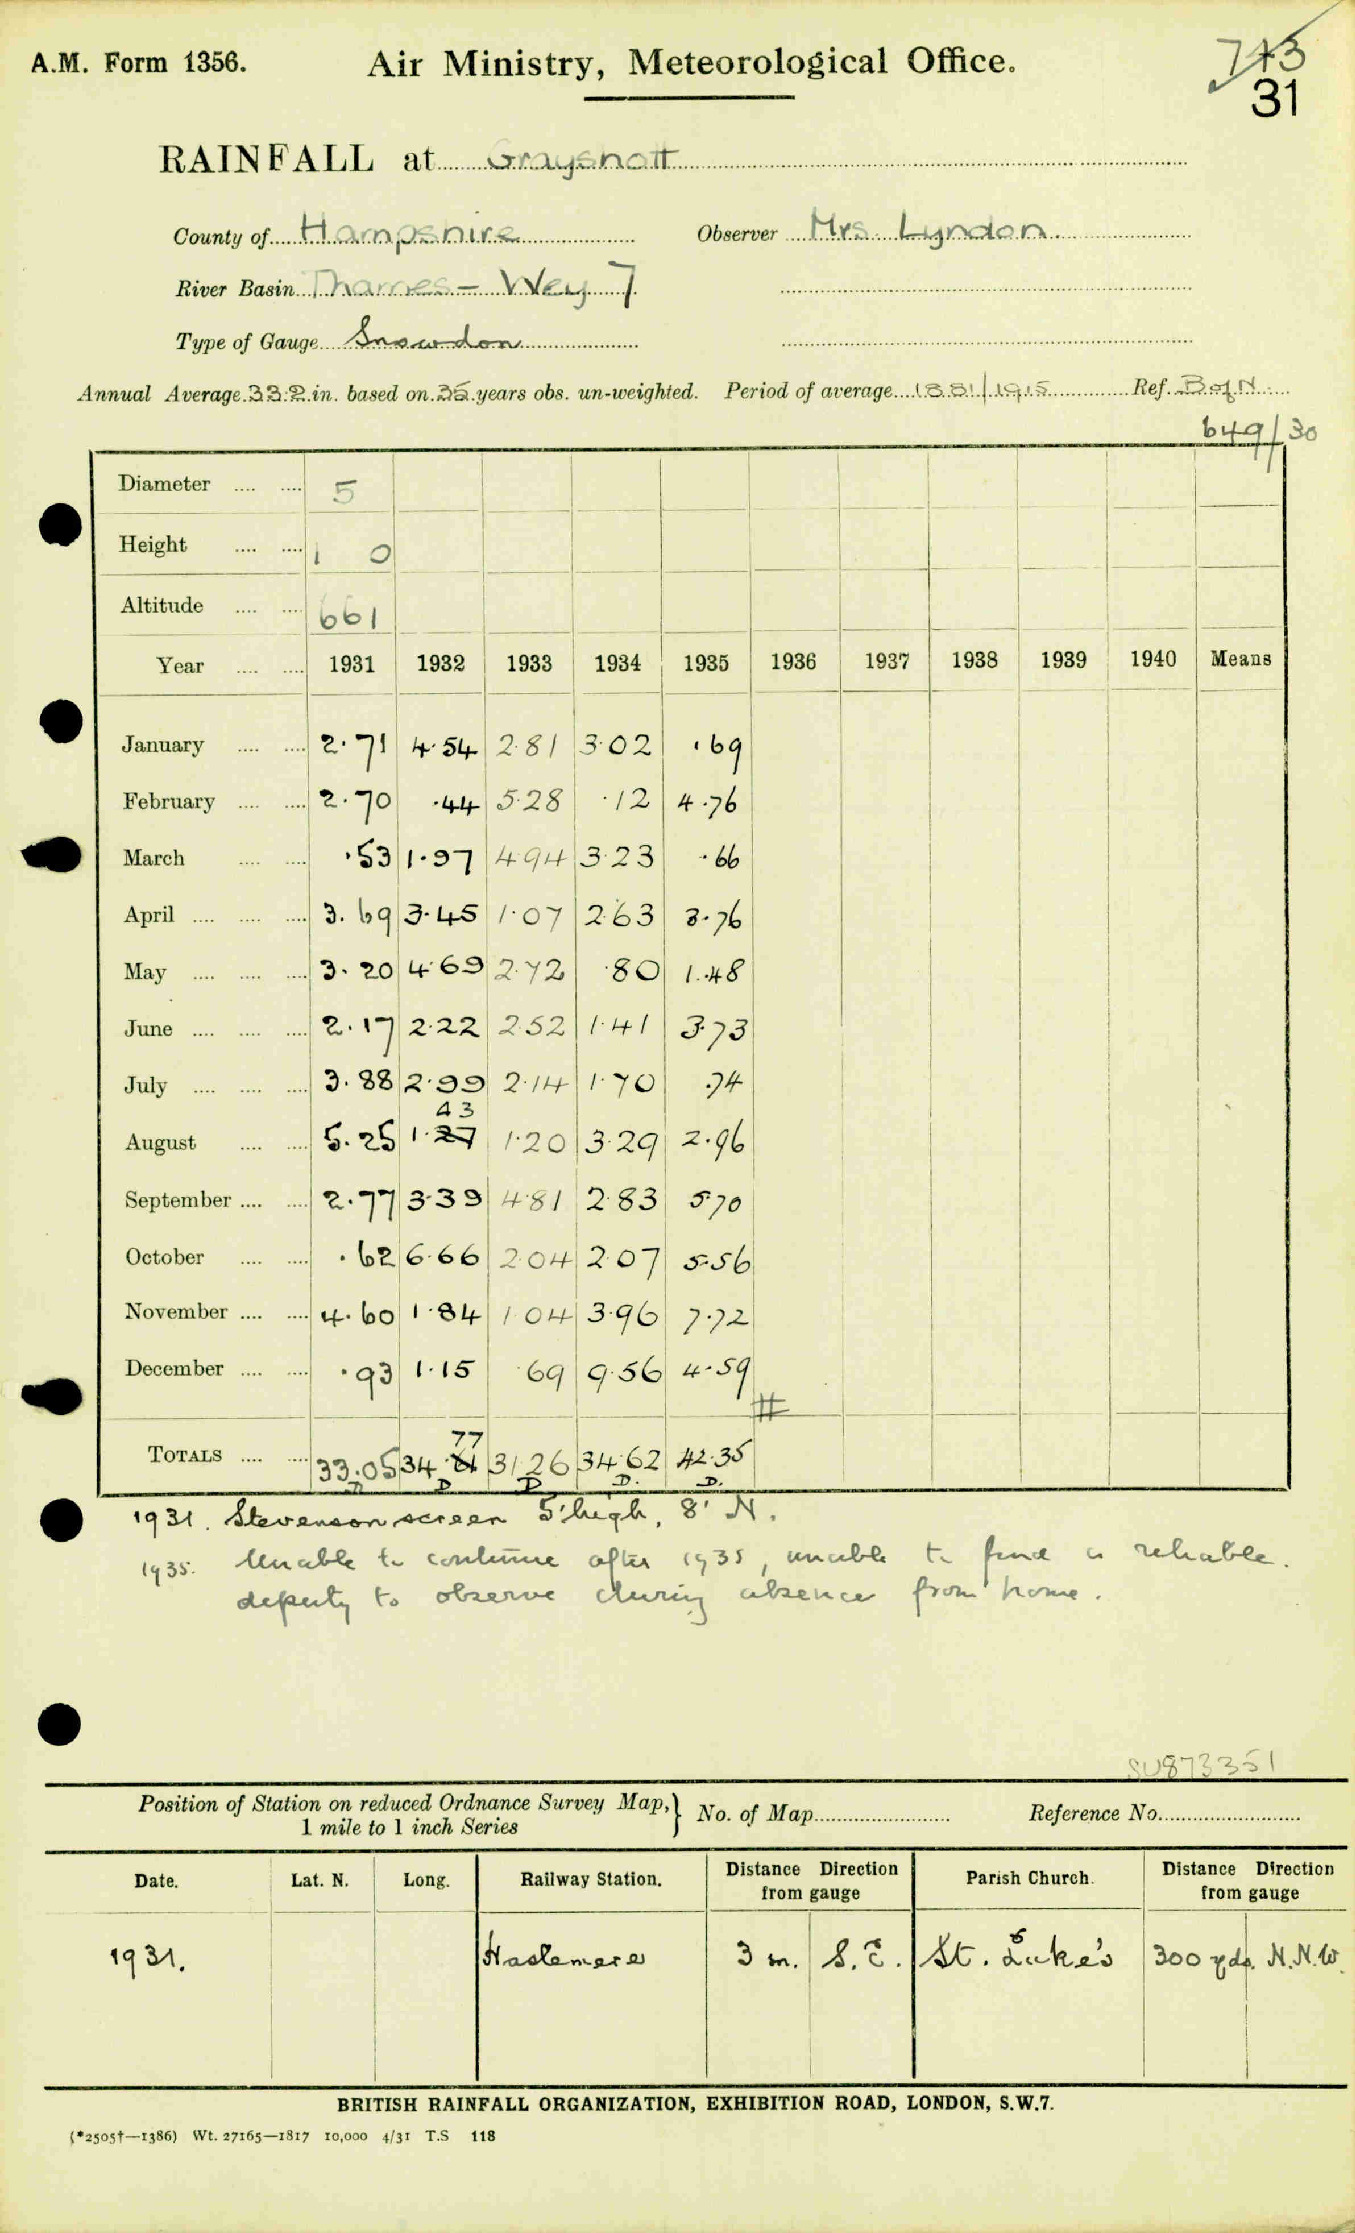 A.M. Form 1356. Air Ministry, Meteorological Office. 743
31
RAINFALL at Grayshott
County of Hampshire Observer Mrs. Lyndon
River Basin Thames - Wey 7
Type of Gauge Snowdon
Annual Average 33.2 in. based on 35 years obs. un-weighted. Period of average 1881/1915 Ref. B of N
649/30
Diameter .... .... 5
Height .... .... 1 0
Altitude .... .... 661
Year .... .... 1931 1932 1933 1934 1935 1936 1937 1938 1939 1940 Means
January .... .... 2.71 4.54 2.81 3.02 .69
February .... .... 2.70 .44 5.28 .12 4.76
March .... .... .53 1.97 4.94 3.23 .66
April .... .... .... 3.69 3.45 1.07 2.63 3.76
May .... .... .... 3.20 4.69 2.72 .80 1.48
June .... .... .... 2.17 2.22 2.52 1.41 3.73
July .... .... .... 3.88 2.99 2.14 1.70 .74
43
August .... .... 5.25 1.27 1.20 3.29 2.96
September .... .... 2.77 3.39 4.81 2.83 5.70
October .... .... .62 6.66 2.04 2.07 5.56
November .... .... 4.60 1.84 1.04 3.96 7.72
December .... .... .93 1.15 .69 9.56 4.59
#
77
TOTALS .... .... 33.05 34.61 31.26 34.62 42.35
D D D. D.
1931. Stevenson screen 5' high, 8' N.
1935. Unable to continue after 1935, unable to find a reliable
deputy to observe during absence from home.
SU873351
Position of Station on reduced Ordnance Survey Map, } No. of Map Reference No.
1 mile to 1 inch Series
Date. Lat. N. Long. Railway Station. Distance Direction from gauge Parish Church. Distance Direction from gauge
1931. Haslemere 3 m. S.E. St. Luke's 300 yds. N.N.W.
BRITISH RAINFALL ORGANIZATION, EXHIBITION ROAD, LONDON, S.W.7.
(*2505†—1386) Wt. 27165—1817 10,000 4/31 T.S 118